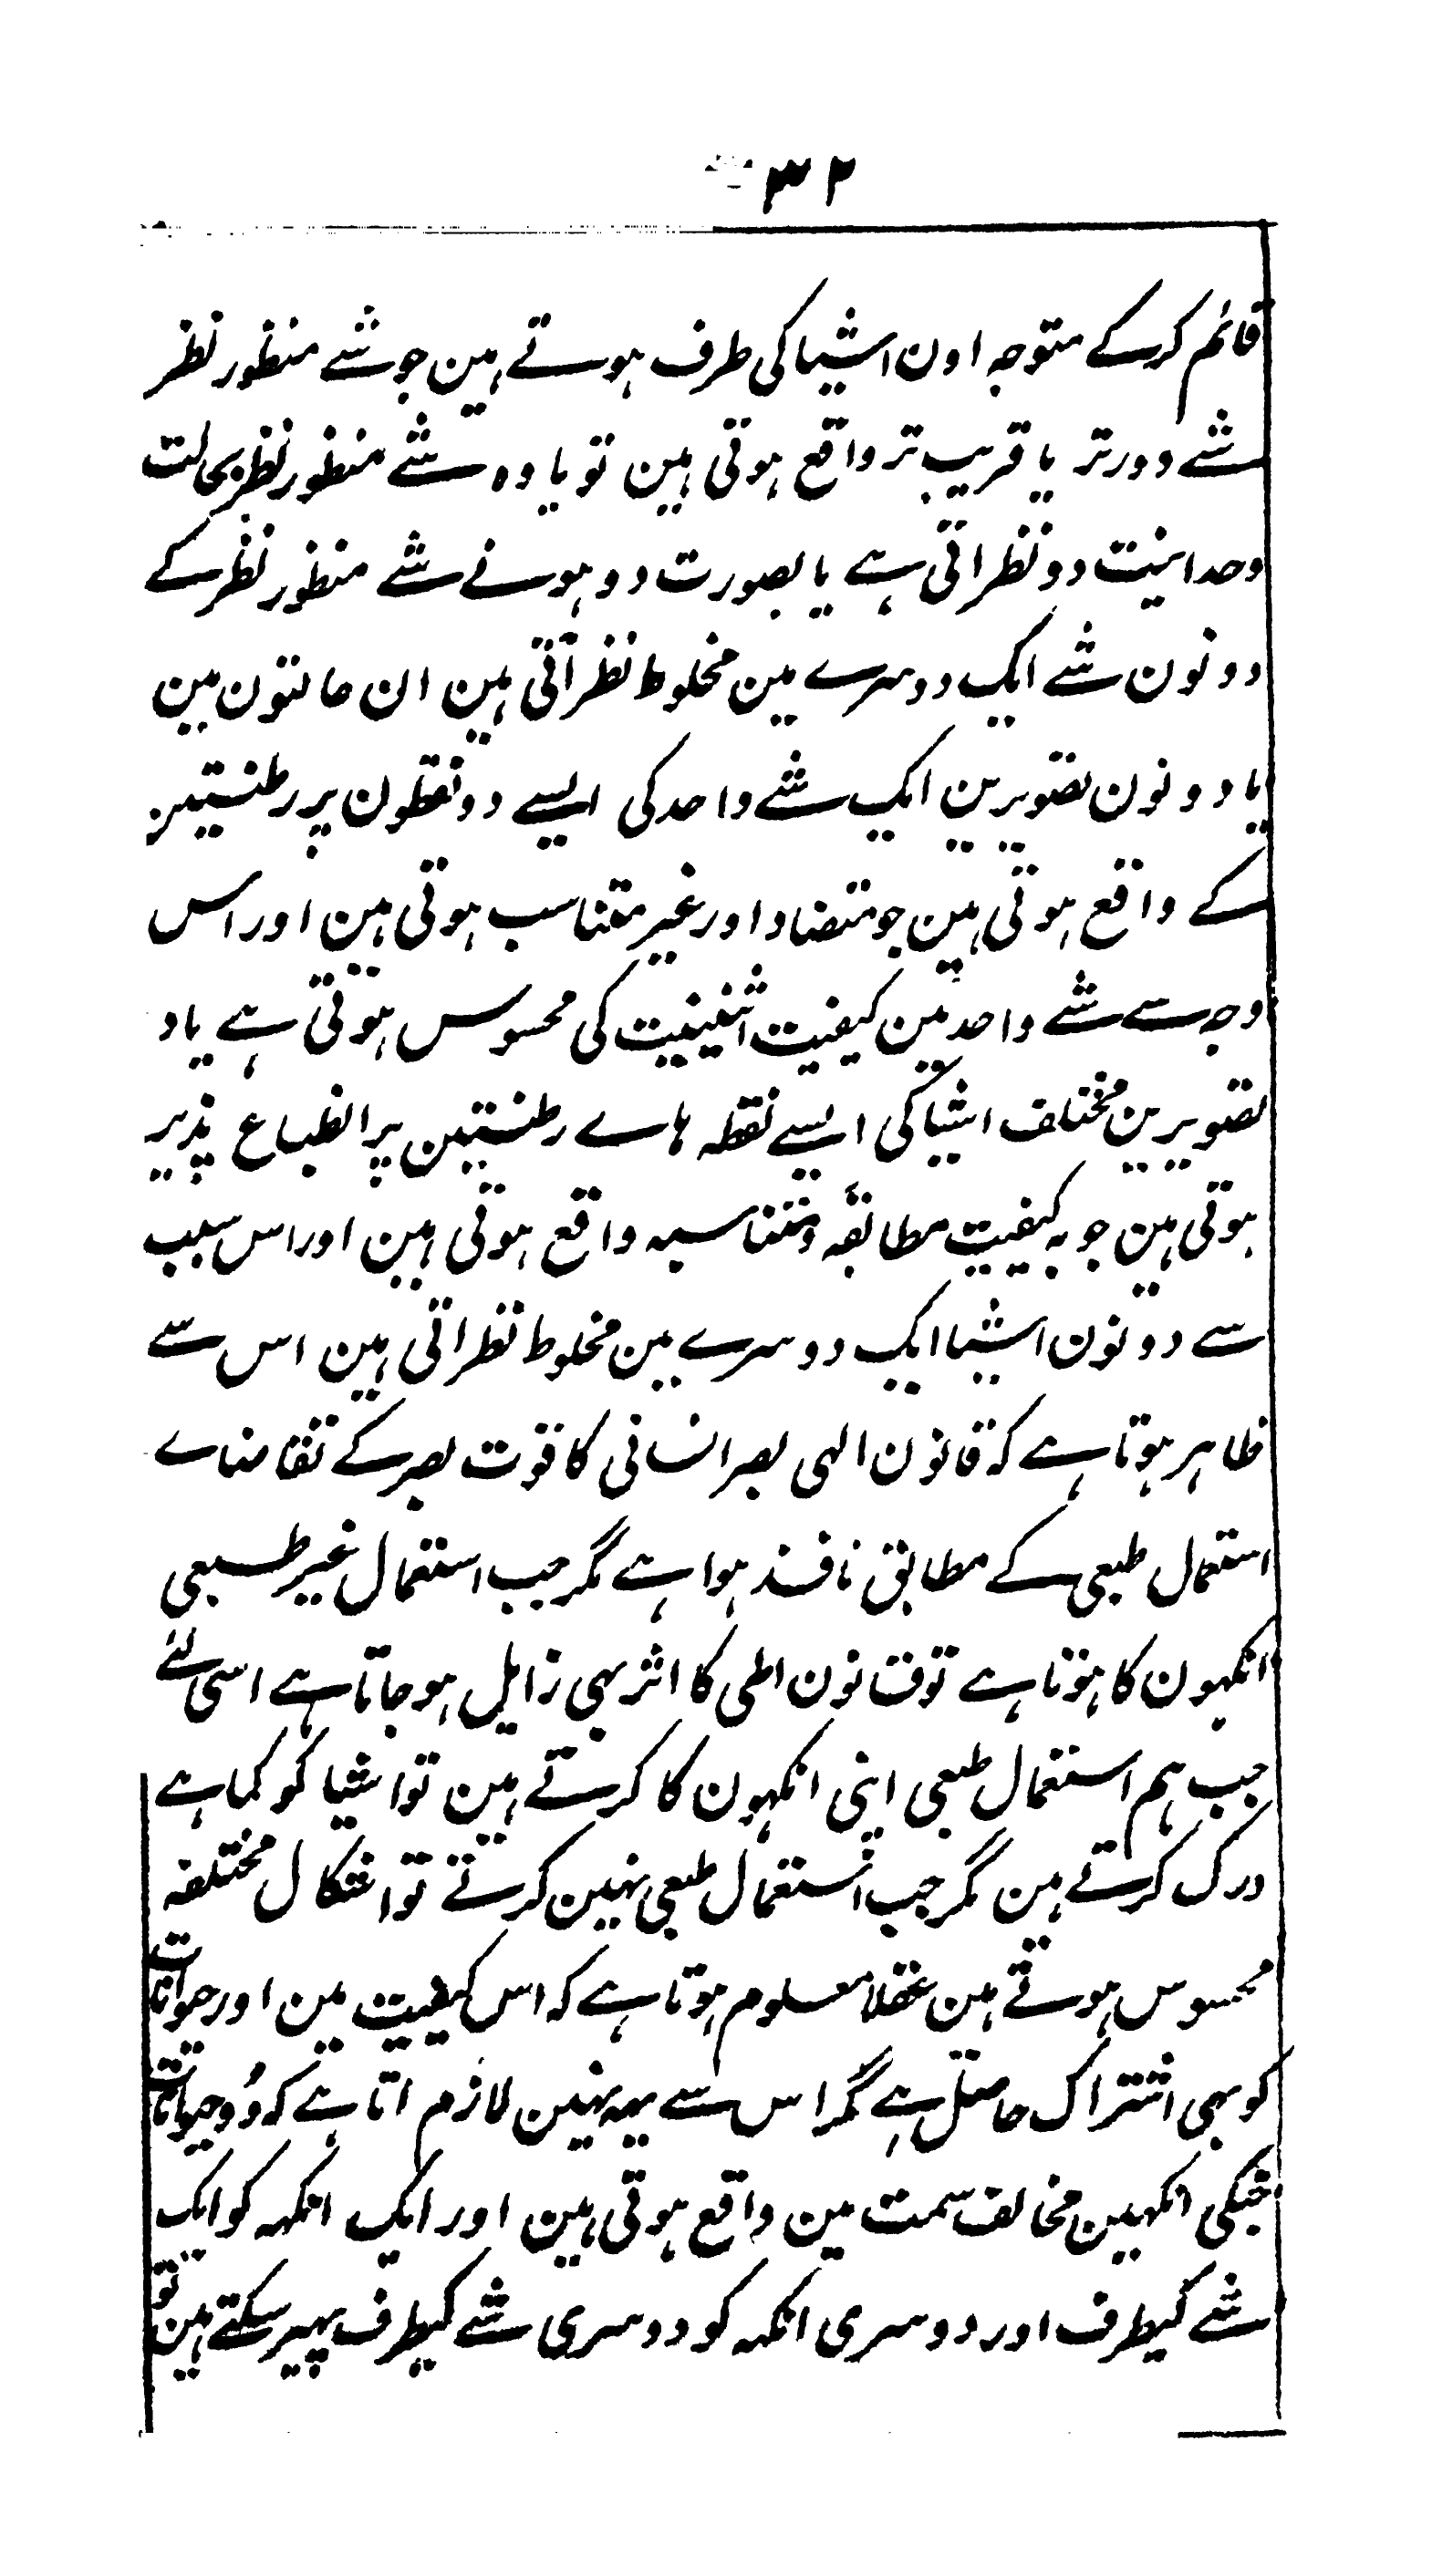 ۳۲
قائم کرکے متوجہ اون اشیا کی طرف ہوتے ہین جو شے منظور نظر
شے دورتر یا قریب تر واقع ہوتی ہین تو یا وہ شے منظور نظر بحالت
وحدانیت دو نظر اتی ہے یا بصورت دو ہونے شے منظور نظر کے
دونون شے ایک دوسرے مین مخلوط نظر آتی ہین ان حالتون مین
یا دونون تصویرین ایک شے واحد کی ایسے دو نقطون پر رطنستین
کے واقع ہوتی ہین جو متضاد اور غیر متناسب ہوتی ہین اور اس
وجہ سے شے واحد مین کیفیت اثنینیت کی محسوس ہوتی ہے یا دو
تصویرین مختلف اشیا کی ایسے نقطہ ہاے رطنستین پر انطباع پذیر
ہوتی ہین جو بہ کیفیت مطابقہ و متناسبہ واقع ہوتی ہین اور اس سبب
سے دونون اشیا ایک دوسرے مین مخلوط نظر اتی ہین اس سے
ظاہر ہوتا ہے کہ قانون الہی بصر انسانی کا قوت بصر کے تقاضاے
استعمال طبعی کے مطابق نافذ ہوا ہے مگر جب استعمال غیر طبعی
انکہون کا ہوتا ہے تو قانون الہی کا اثر بہی زایل ہو جاتا ہے اسی لئے
جب ہم استعمال طبعی اپنی انکہون کا کرتے ہین تو اشیا کو کما ہے
درک کرتے ہین مگر جب استعمال طبعی نہین کرتے تو اشکال مختلفہ
محسوس ہوتے ہین عقلاً معلوم ہوتا ہے کہ اس کیفیت مین اور حیوانات
کو بہی اشتراک حاصل ہے مگر اس سے یہہ نہین لازم اتا ہے کہ وُہ حیوانات
جنکی انکہین مخالف سمت مین واقع ہوتی ہین اور ایک انکہہ کو ایک
شے کیطرف اور دوسری انکہہ کو دوسری شے کیطرف پہیر سکتے ہین تو